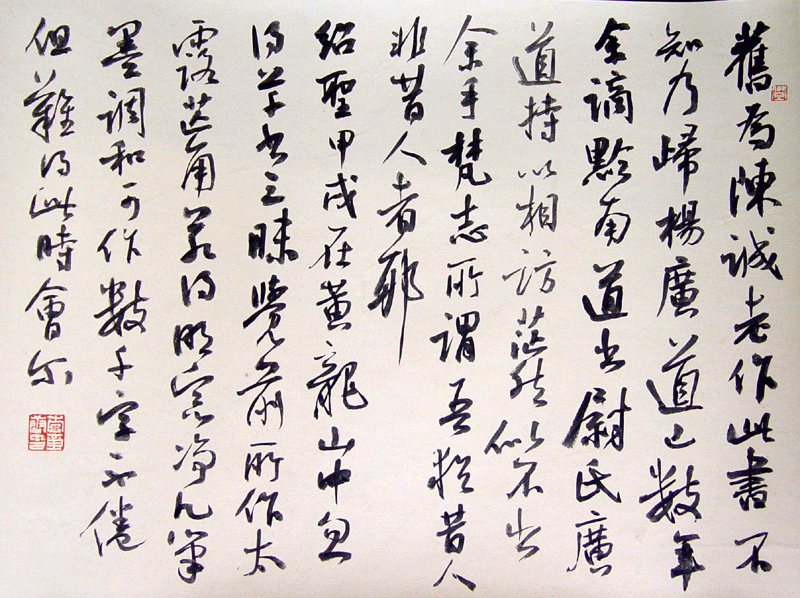 舊為陳誠老作此書不
知乃歸楊廣道已數年
余謫黔南道出尉氏廣
道持以相訪茫然似不出
余手梵志所謂吾猶昔人
非昔人者耶
紹聖甲戌在黃龍山中忽
得草書三昧覺前所作太
露芒角若得明窓淨几筆
墨調和可作數千字不倦
但難得此時會尔